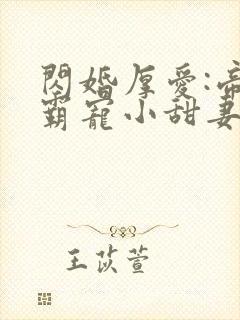 閃婚厚愛:帝
霸寵小甜妻
王苡萱